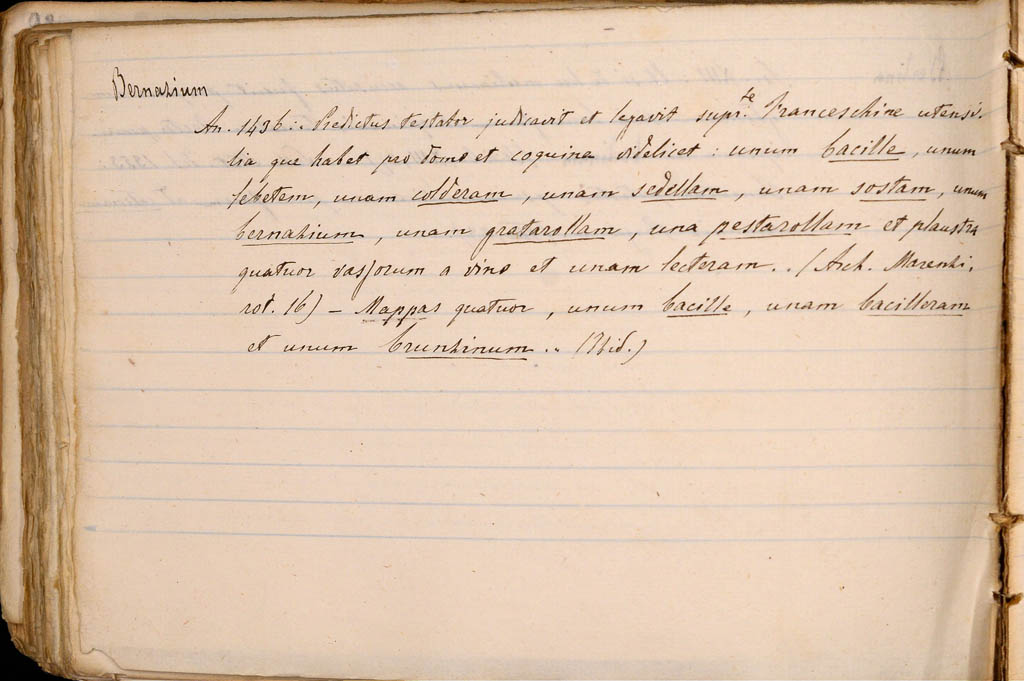 Bernazium
An. 1436:. Predictus testator judicavit et legavit supr.te Franceschine utensi-
lia que habet pro domo et coquina videlicet : unum bacille, unum
lebetem, unam colderam, unam sedellam, unam sostam, unum
bernazium, unam gratarollam, una pestarollam et plaustra
quatuor vassorum a vino et unam lecteram.. (Arch. Marenzi,
rot. 16) – Mappas quatuor, unum bacille, unam bacilleram
et unum brunzinum .. (Ibid.)